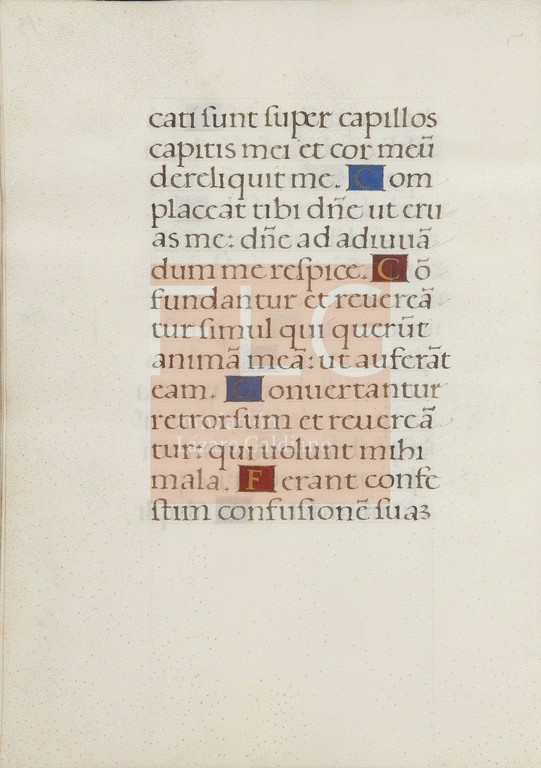 cati ſunt ſuper capillos
capitis mei et cor meū
dereliquit me. Com
placeat tibi dñe ut eru
as me: dñe ad adiuuā
dum me reſpice. Cō
fundantur et reuereā
tur ſimul qui querūt
animā meā: ut auferāt
eam. Conuertantur
retrorſum et reuereā
tur: qui uolunt mihi
mala. Ferant confe
ſtim confuſionē ſuaꝫ
FLG
Lázaro Galdiano